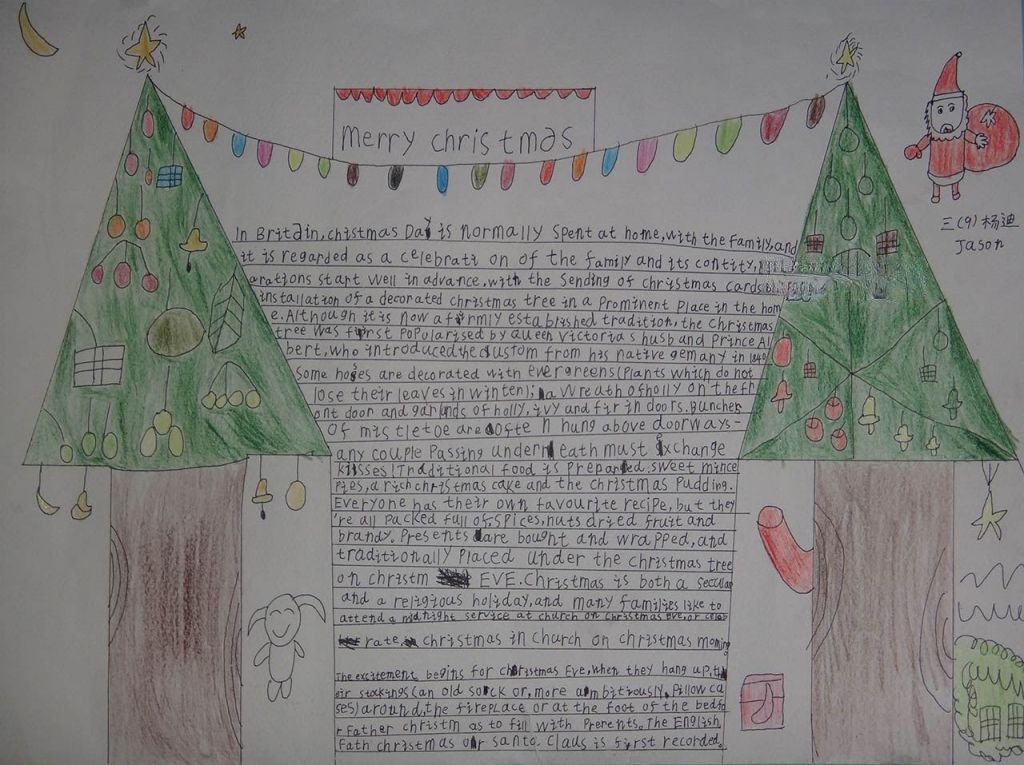 merry christmas
三(9)杨迪
Jason
In Britain, christmas Day is normally spent at home, with the family, and
it is regarded as a celebrati on of the family and its contity,
arations start well in advance, with the sending of christmas cards
installation of a decorated christmas tree in a Prominent Place in the hom
e. Although it is now a firmly established tradition, the christmas
tree was first Popularised by Queen Victoria's husb and Prince Al
bert, who introduced the custom from his native gemany in 1840
some homes are decorated with evergreens (Plants which do not
lose their leaves in winter); a wreath of holly on the fr
ont door and garlands of holly, ivy and fir in doors. Bunches
Of mistletoe are ofte n hung above doorways-
any couple Passing undern eath must exchange
kisses! Traditional food is Prepared. sweet mince
Pies, a rich christmas cake and the christmas Pudding.
Everyone has their own favourite recipe, but they
're all Packed full of spices, nuts dried fruit and
brandy. Presents are bought and wrapped, and
traditionally Placed under the christmas tree
on christm EVE. Christmas is both a secular
and a religious holiday, and many families like to
attend a midnight service at church on christmas Eve, or celeb
rate christmas in church on christmas morning
The excitement begins for christmas Eve, when they hang up, th
eir stockings (an old sock or, more ambitiously, Pillow ca
ses) around, the fireplace or at the foot of the bed fo
r Father christm as to fill with Prerents. The English
Fath christmas or santa. Claus is first recorded.